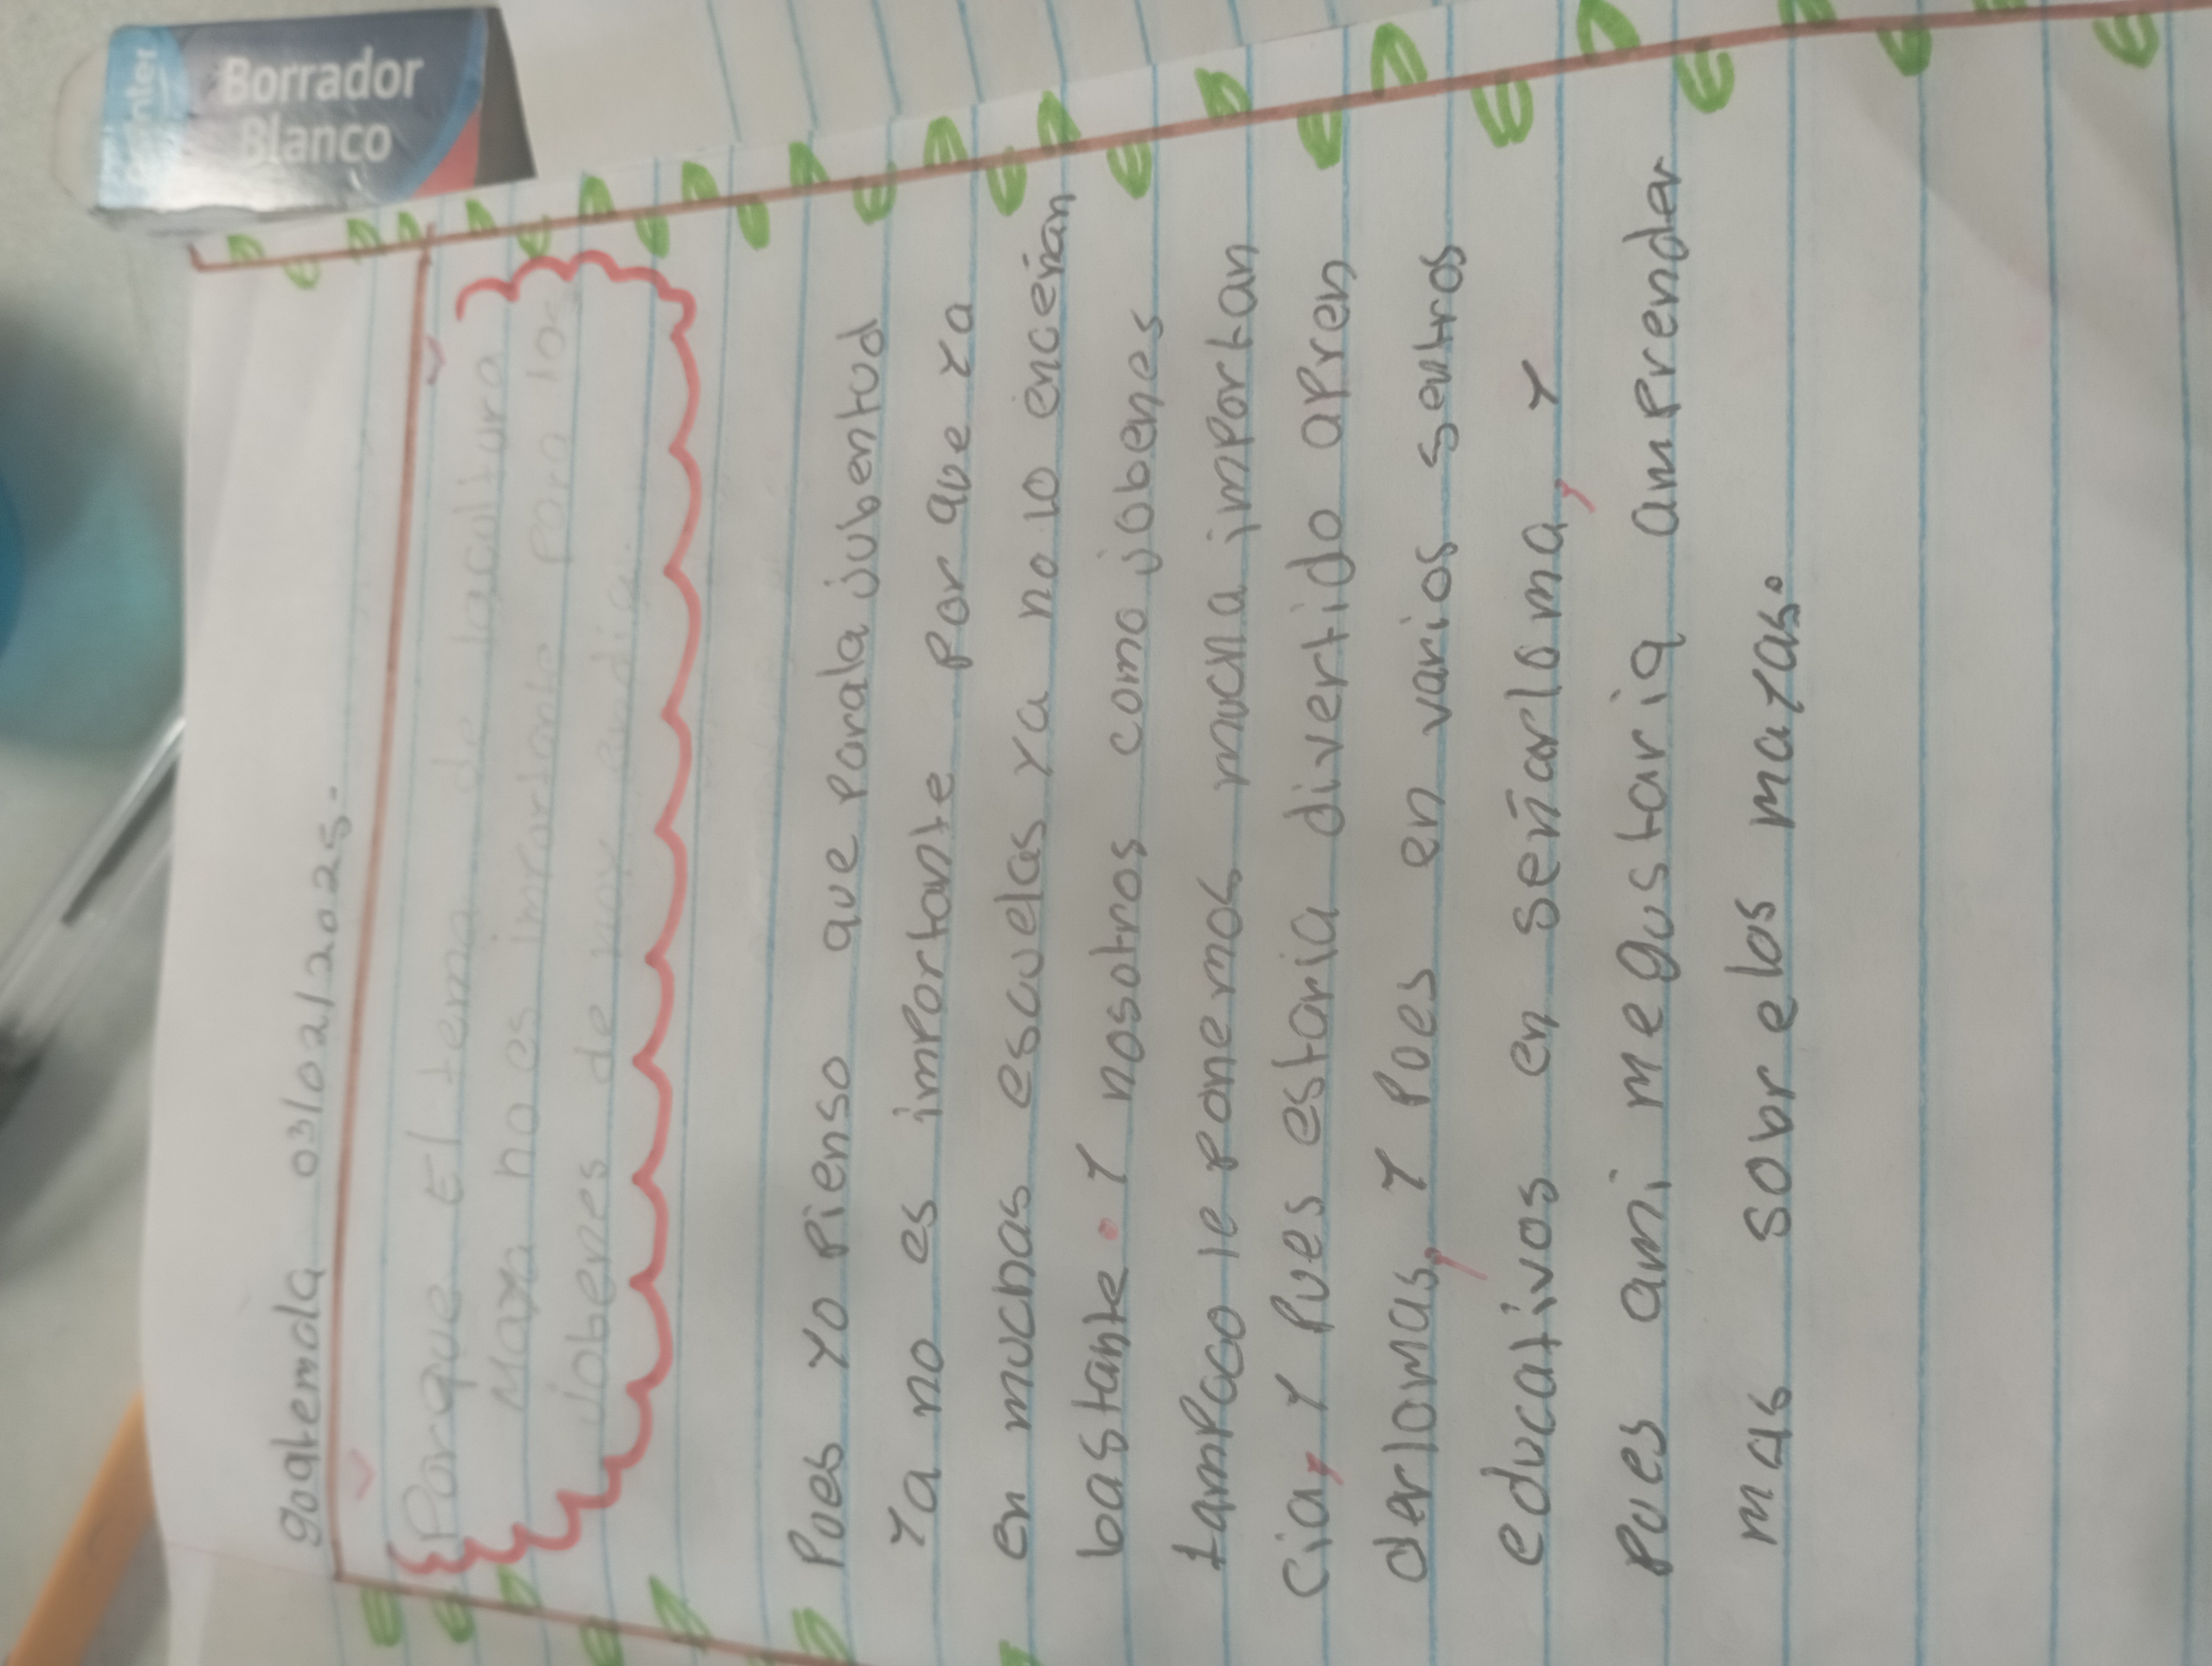 Borrador
Blanco
guatemala 03/02/2025.
Porque El tema de la cultura
Maya no es importante para los
jobenes de hoy endia.
Pues yo pienso que para la jubentud
ya no es importante por que ya
en muchas escuelas ya no lo enceñan
bastante. y nosotros como jobenes
tampoco le ponemos mucha importan
cia, y pues estaria divertido apren
derlo mas, y pues en varios sentros
educativos en señarlo ma, y
pues ami me gustaria amprender
mas sobre los mayas.